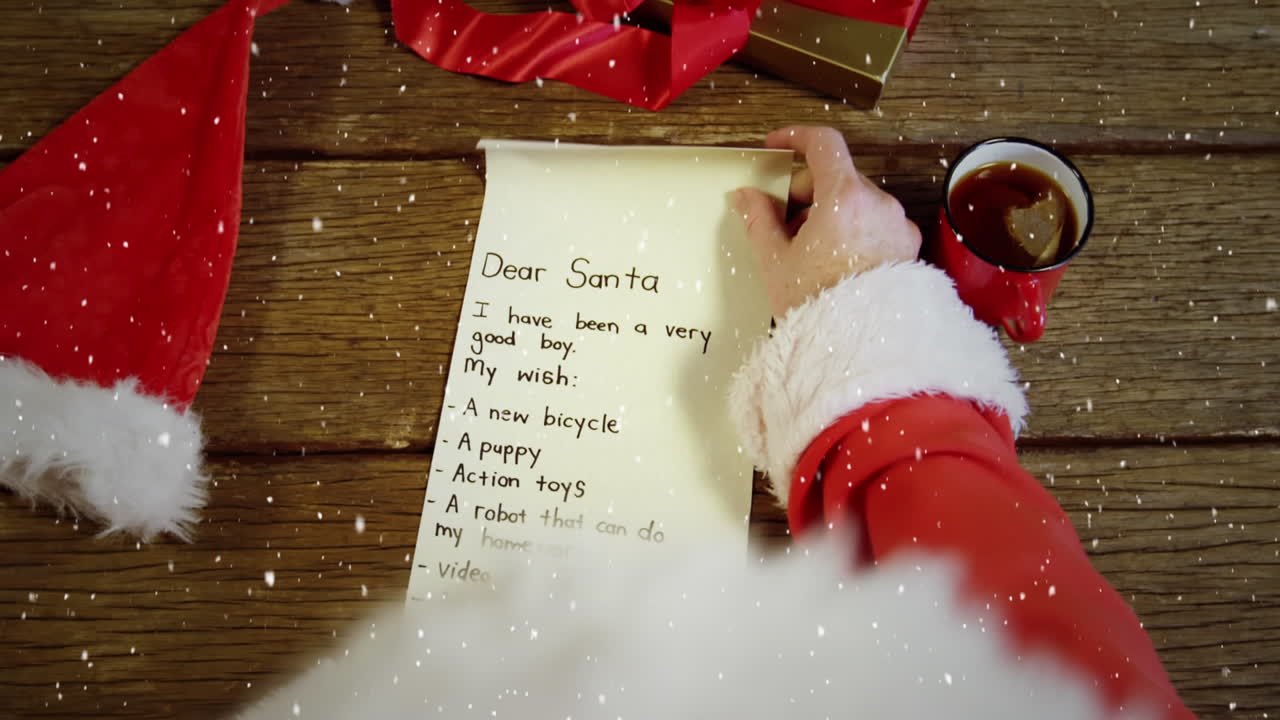 Dear Santa
I have been a very
good boy.
My wish:
- A new bicycle
- A puppy
- Action toys
- A robot that can do
my homework
- video